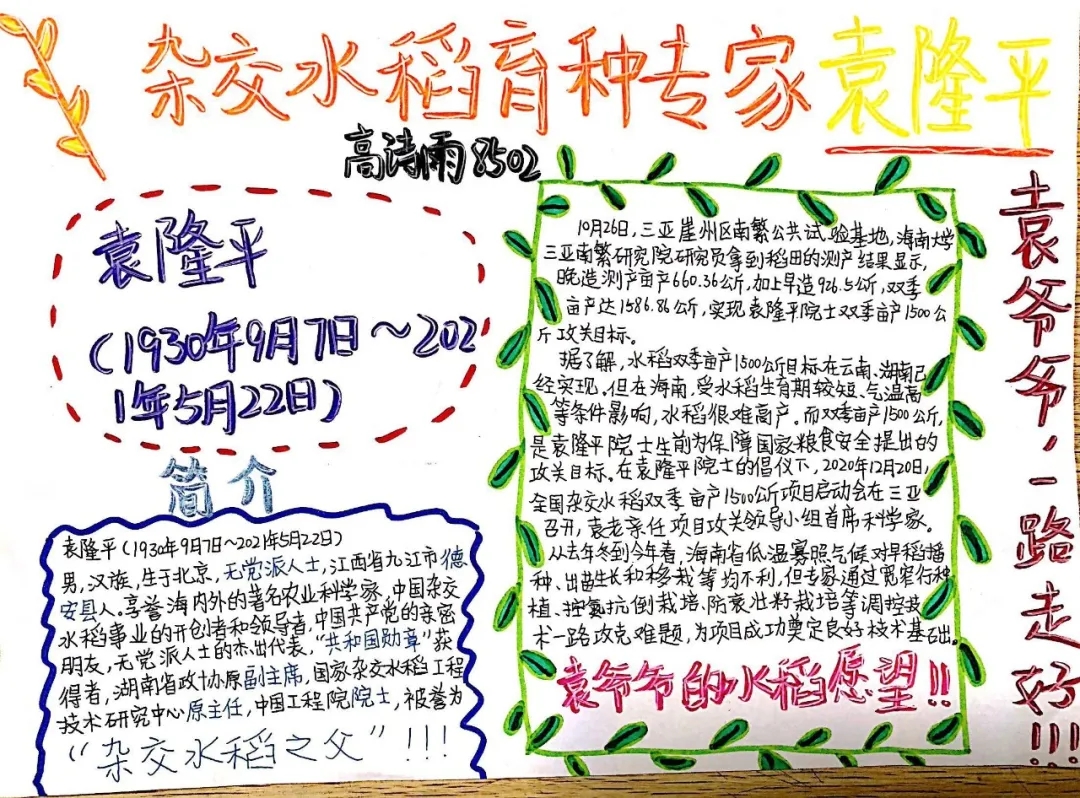 杂交水稻育种专家袁隆平
高诗雨8502
袁隆平
(1930年9月7日～202
1年5月22日)
简介
袁隆平(1930年9月7日～2021年5月22日)
男,汉族,生于北京,无党派人士,江西省九江市德
安县人。享誉海内外的著名农业科学家,中国杂交
水稻事业的开创者和领导者,中国共产党的亲密
朋友,无党派人士的杰出代表,“共和国勋章”获
得者,湖南省政协原副主席,国家杂交水稻工程
技术研究中心原主任,中国工程院院士,被誉为
“杂交水稻之父”!!!
10月26日,三亚崖州区南繁公共试验基地,海南大学
三亚南繁研究院研究员拿到稻田的测产结果显示,
晚造测产亩产660.36公斤,加上早造926.5公斤,双季
亩产达1586.86公斤,实现袁隆平院士双季亩产1500公
斤攻关目标。
据了解,水稻双季亩产1500公斤目标在云南、湖南已
经实现。但在海南,受水稻生育期较短、气温高
等条件影响,水稻很难高产。而双季亩产1500公斤,
是袁隆平院士生前为保障国家粮食安全提出的
攻关目标。在袁隆平院士的倡仪下,2020年12月20日,
全国杂交水稻双季亩产1500公斤项目启动会在三亚
召开,袁老亲任项目攻关领导小组首席科学家。
从去年冬到今年春,海南省低温寡照气候对早稻播
种、出苗生长和移栽等均不利,但专家通过宽窄行种
植、控氮抗倒栽培、防衰壮籽栽培等调控技
术一路攻克难题,为项目成功奠定良好技术基础。
袁爷爷的水稻愿望!!
袁爷爷,一路走好!!!